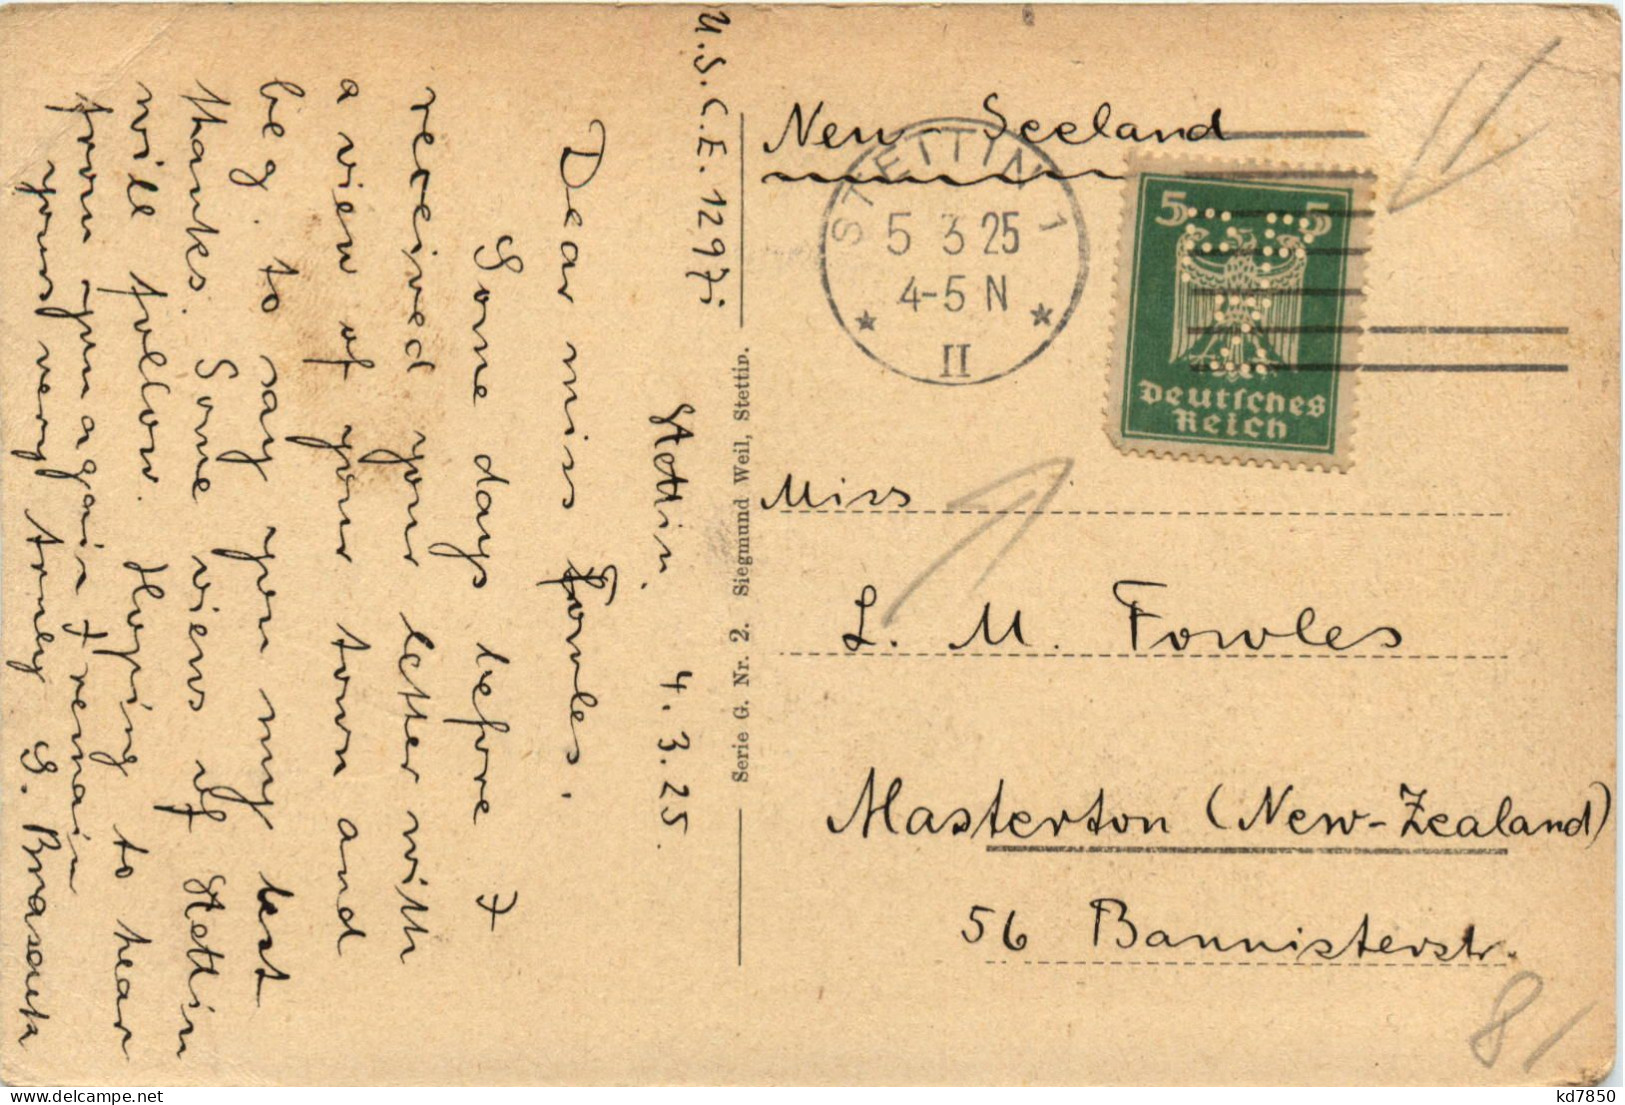 U.S.C.E. 1297i
Stettin, 4.3.25.
Dear miss Fowles.
Some days before I
received your letter with
a view of your town and
beg. to say you my best
thanks. Some views of Stettin
will follow. Hoping to hear
from you again I remain
yours very truly G.
Serie G. Nr. 2. Siegmund Weil, Stettin.
New-Seeland
STETTIN 1
5 3 25
4-5 N
* II *
5 5
Deutsches
Reich
Miss
L. M. Fowles
Masterton (New-Zealand)
56 Bannisterstr.
81
kd7850